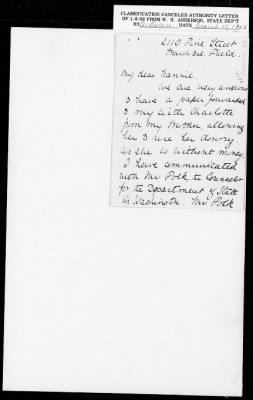 CLASSIFICATION CANCELED AUTHORITY LETTER
OF 1-8-58 FROM W. H. ANDERSON, STATE DEP'T
BY DATE March
2110 Pine Street
Phila.
My dear Nannie.
We are very anxious
to have a paper forwarded
to my sister Charlotte
from my Mother allowing
her to use her dowry
as she is without money
I have communicated
with Mr Polk the Counselor
for the Department of State
in Washington. Mr Polk